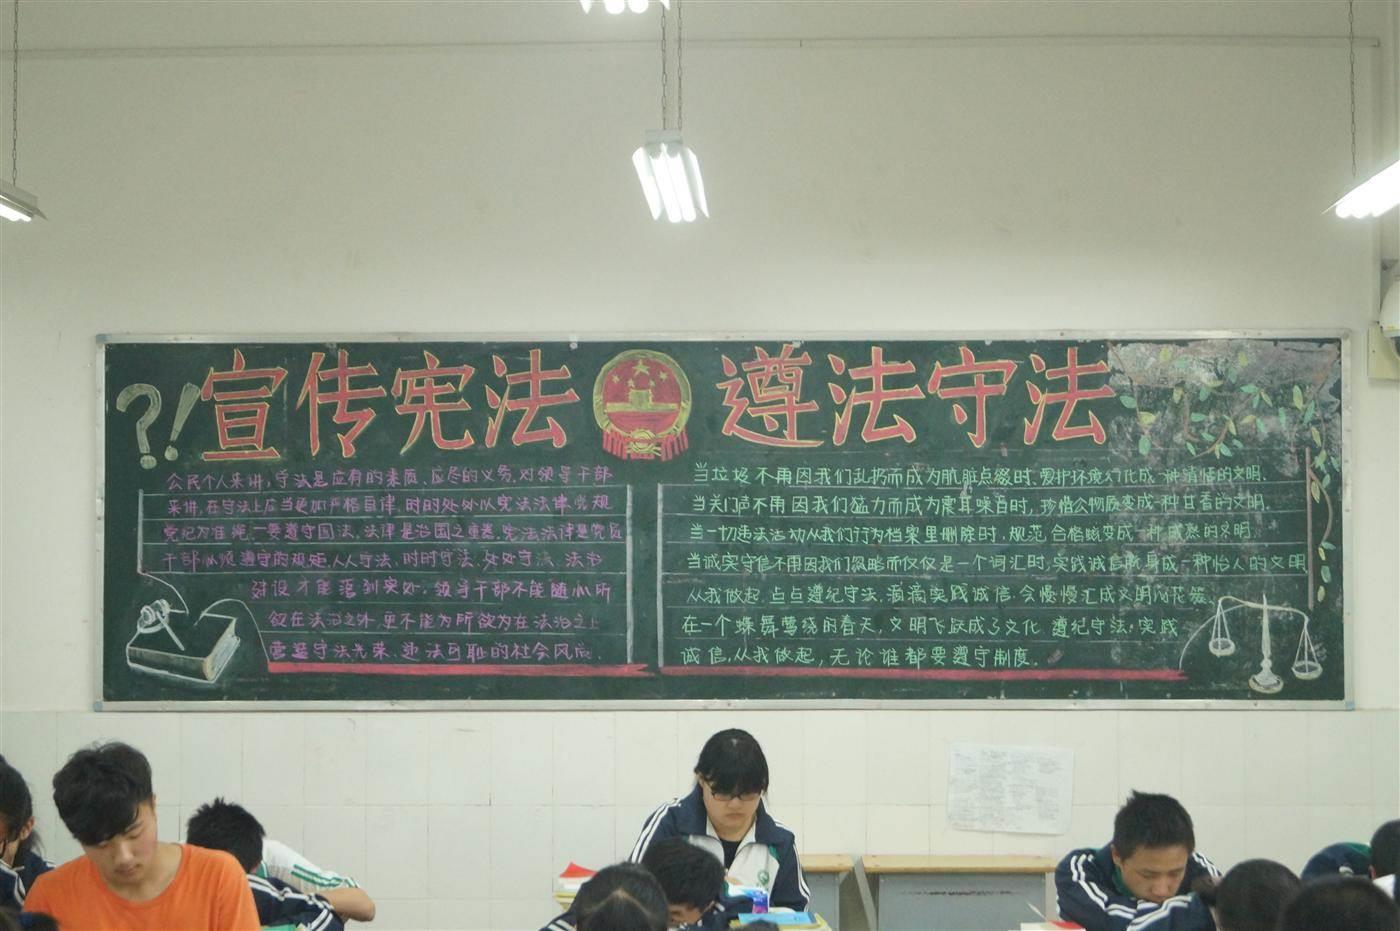 宣传宪法 遵法守法
公民个人来讲,守法是应有的素质、应尽的义务,对领导干部
来讲,在守法上应当更加严格自律,时时处处以宪法法律党规
党纪为准绳。一要遵守国法,法律是治国之重器,宪法法律是党员
干部必须遵守的规矩,人人守法、时时守法、处处守法,法治
建设才能落到实处。领导干部不能随心所
欲在法治之外,更不能为所欲为在法治之上
营造守法光荣、违法可耻的社会风尚。
当垃圾不再因我们乱扔而成为肮脏点缀时,爱护环境幻化成一种清恬的文明.
当关门声不再因我们猛力而成为震耳噪音时,珍惜公物质变成一种甘香的文明.
当一切违法活动从我们行为档案里删除时,规范合格蜕变成一种成熟的文明.
当诚实守信不再因我们忽略而仅仅是一个词汇时,实践诚信献身成一种怡人的文明
从我做起,点点遵纪守法,滴滴实践诚信,会慢慢汇成文明的花簇、
在一个蝶舞莺绕的春天,文明飞跃成了文化,遵纪守法,实践
诚信,从我做起,无论谁都要遵守制度.